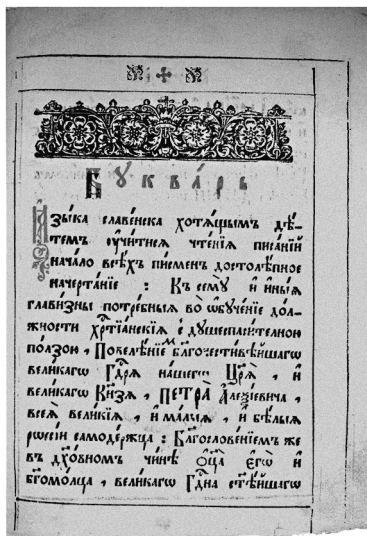 Бу́ква́рь
Ꙗ҆зы́ка славе́нска хотѧ́щымъ дѣ́-
темъ ᲂу҆чи́тисѧ чте́нїѧ писа́нїй
нача́ло всѣ́хъ писмен достолѣ́пное
начерта́нїе : Къ семꙋ̀ и҆ и҆ны́ѧ
глави́зны потре́бныѧ во ѡ҆бꙋче́нїе до́л-
жности хрⷭ҇тїа́нскїѧ с̾ дꙋшеспаси́телною
по́лзою , Повелѣ́нїемъ Бл҃гочести́вѣйшагѡ
вели́кагѡ Гдⷭ҇рѧ на́шегѡ Цр҃ѧ̀ , и҆
вели́кагѡ Кнѧ́зѧ , ПЕТРА̀ А҆леѯі́евича ,
всеѧ̀ вели́кїѧ , и҆ ма́лыѧ , и҆ бѣ́лыѧ
рѡссі́и самоде́ржца : Бл҃гослове́нїемъ же
въ дх҃о́вномъ чи́нѣ ѻ҆ц҃а̀ є҆гѡ̀ и҆
бг҃омо́лца , вели́кагѡ Гдⷭ҇на ст҃ѣ́йшагѡ